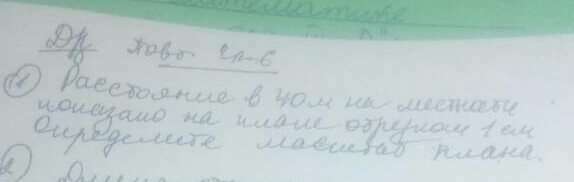 математике
Др
1) Расстояние в 40 м на местности
показано на плане отрезком 1 см
Определите масштаб плана.
2) Длина